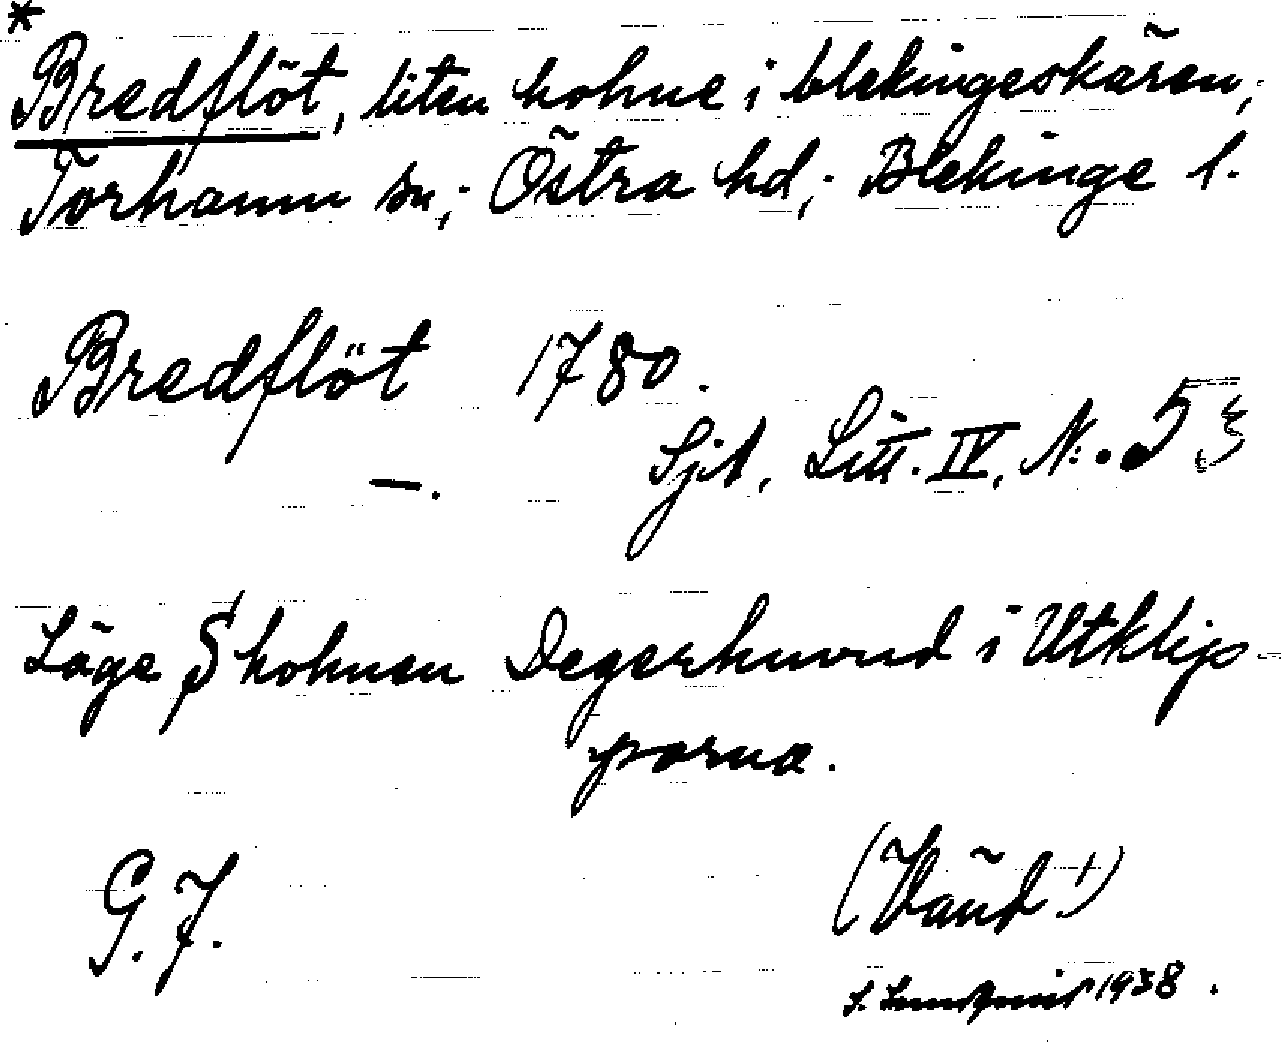 *
Bredflöt, liten kobne i blekingeskären,
Torhamn sn; Östra hd; Blekinge l.
Bredflöt 1780.
—. Sjö, Litt. IV. N:. 5
Läge S kobnen Degerhuvud i Utklip-
porna.
G. J. (Vänd!)
S. Lundquist 1938.